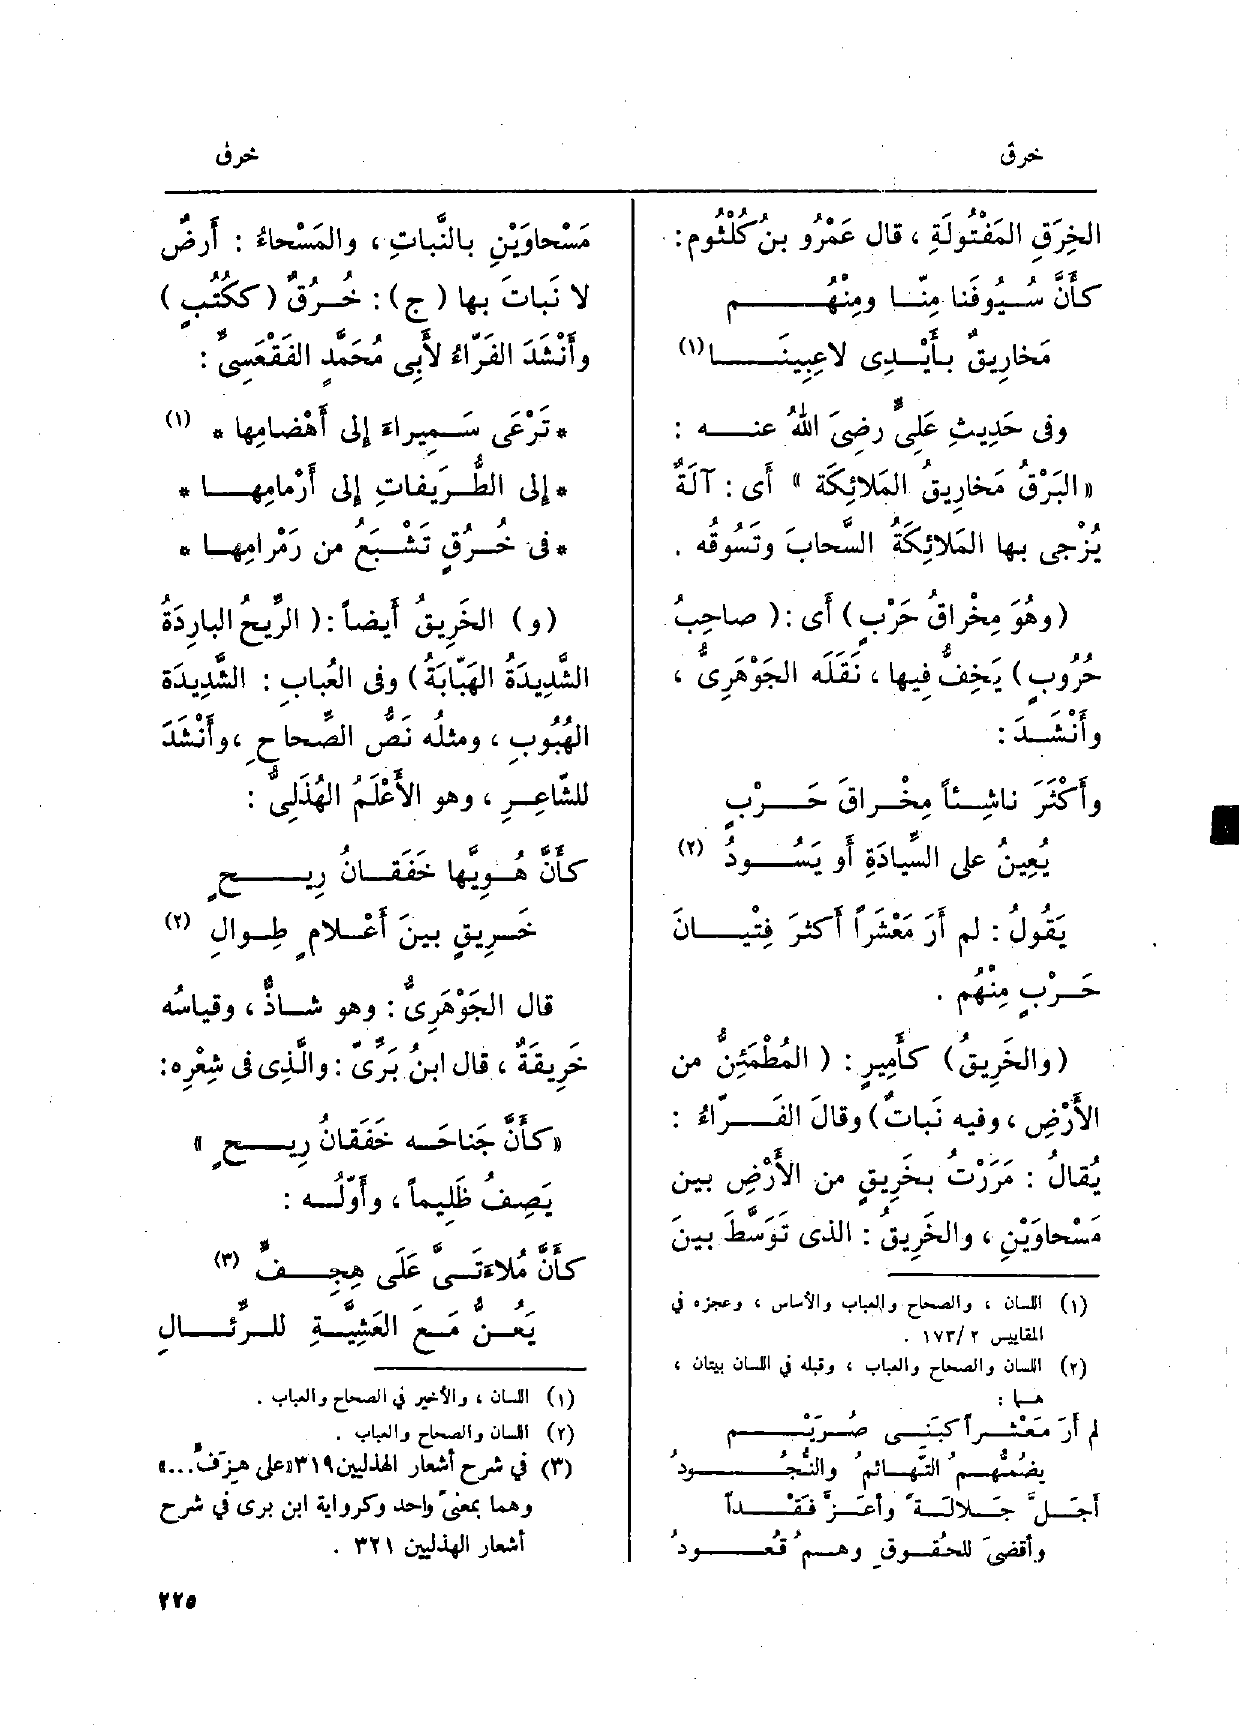 خرق
خرق
الخِرَقِ المَفْتُولَةِ ، قال عَمْرُو بنُ كُلْثُوم:
كأَنَّ سُـيُوفَنا مِنَّـا ومِنْهُـم
مَخارِيقٌ بـأَيْـدِى لاعِبِينَـا(١)
وفى حَدِيثِ عَلِىٍّ رضِىَ اللهُ عنـه :
«البَرْقُ مَخارِيقُ المَلائِكَة » أَى : آلَةٌ
يُزْجى بها المَلائِكَةُ السَّحابَ وتَسُوقُه .
(وهُوَ مِخْراقُ حَرْبٍ) أَى :( صاحِبُ
حُرُوبٍ) يَخِفُّ فِيها ، نَقَلَه الجَوْهَرِىُّ ،
وأَنْشَـدَ :
وأَكْثَرَ ناشِـئاً مِخْـراقَ حَـرْبٍ
يُعِينُ على السِّيادَةِ أَو يَسُـودُ (٢)
يَقُولُ : لم أَرَ مَعْشَراً أَكثرَ فِتْيـانَ
حَـرْبٍ مِنْهُم .
(والخَرِيقُ) كأَمِيرٍ : ( المُطْمَئِنُّ من
الأَرْضِ ، وفيه نَباتٌ) وقالَ الفَـرّاءُ :
يُقالُ : مَرَرْتُ بخَرِيقٍ من الأَرْضِ بين
مَسْحاوَيْنِ ، والخَرِيقُ : الذى تَوَسَّطَ بينَ
(١) اللسان ، والصحاح والعباب والأساس ، وعجزه في
المقاييس ٢ /١٧٣ .
(٢) اللسان والصحاح والعباب ، وقبله في اللسان بيتان ،
هـما :
لم أرَ مَعْشَـراً كبَنِـى صُـرَيْـم
يضُمُّهـم التَّهـائم والنُّجُـودُ
أجَـلَّ جَـلالَـةً وأعَـزَّ فَقْـداً
وأقضىَ للحُقـوقِ وهـم قُعـودُ
مَسْحاوَيْنِ بالنَّباتِ ، والمَسْحاءُ : أَرضٌ
لا نَباتَ بها ( ج) : خُـرُقٌ (ككُتُبٍ )
وأَنْشَدَ الفَرّاءُ لأَبِى مُحَمَّدٍ الفَقْعَسِىِّ :
*تَرْعَى سَـمِيراءَ إلى أَهْضامِها * (١)
*إلى الطُّـرَيفاتِ إلى أَرْمامِهـا *
*فى خُـرُقٍ تَشْـبَعُ من رَمْرامِهـا *
(و) الخَرِيقُ أَيضاً :( الرِّيحُ البارِدَةُ
الشَّدِيدَةُ الهَبّابَةُ) وفى العُبابِ : الشَّدِيدَة
الهُبُوبِ ، ومثلُه نَصُّ الصِّحاحِ ،وأَنْشَدَ
للشّاعِـرِ ، وهو الأَعْلَمُ الهُذَلِىُّ :
كأَنَّ هُـوِيَّها خَفَقـانُ رِيـحٍ
خَـرِيقٍ بينَ أَعْـلامٍ طِـوالِ (٢)
قال الجَوْهَرِىُّ : وهو شـاذٌّ ، وقياسُه
خَرِيقَةٌ ، قال ابنُ بَرِّىّ : والَّذِى فى شِعْرِه:
«كأَنَّ جَناحَـه خَفَقانُ رِيـحٍ »
يَصِفُ ظَلِيماً ، وأَوّلُـه :
كأَنَّ مُلاءَتَـىَّ عَلَى هِجَـفٍّ (٣)
يَعُـنُّ مَـعَ العَشِيَّـةِ للـرِّئـالِ
(١) اللسان ، والأخير في الصحاح والعباب .
(٢) اللسان والصحاح والعباب .
(٣) في شرح أشعار الهذليين٣١٩«على هِزَفٍّ...»
وهما بمعنىً واحد وكرواية ابن برى في شرح
أشعار الهذليين ٣٢١ .
٢٢٥